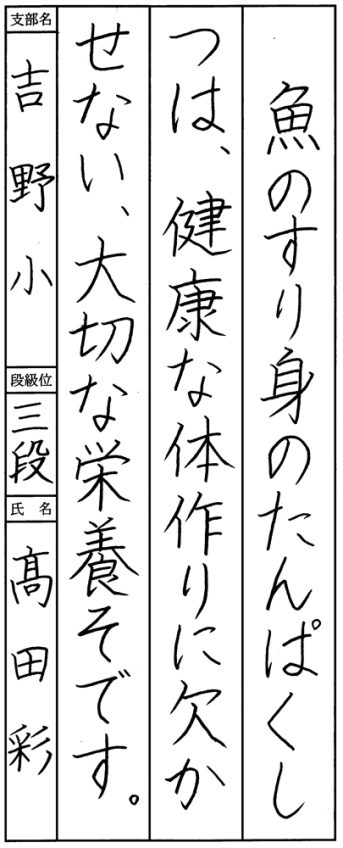 魚のすり身のたんぱくし
つは、健康な体作りに欠か
せない、大切な栄養そです。
支部名
吉野小
段級位
三段
氏名
髙田彩